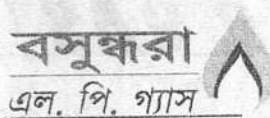 বসুন্ধরা
এল. পি. গ্যাস